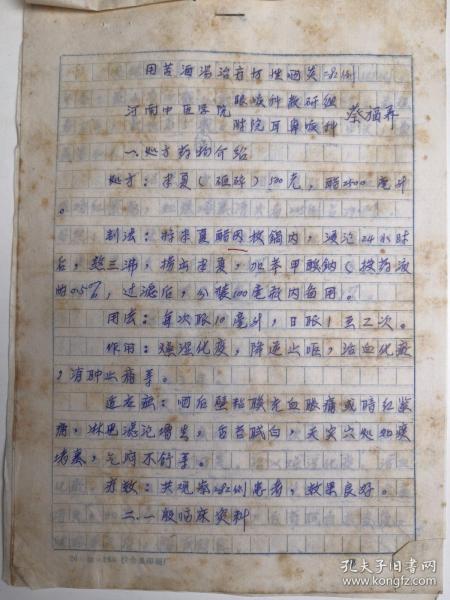 用苦酒汤治疗慢性咽炎282例
河南中医学院 眼喉科教研组
附院耳鼻喉科 蔡福养
一、处方药物介绍
处方：半夏(砸碎)500克，醋2500毫升
。
制法：将半夏醋同放锅内，浸泡24小时
后，熬三沸，捞出半夏，加苯甲酸钠(按药液
的0.5%，过滤后，分装100毫瓶内备用。
用法：每次服10毫升，日服1至2次。
作用：燥湿化痰，降逆止呕，活血化瘀
，消肿止痛等。
适应症：咽后壁粘膜充血眼痛或暗红紫
痛，淋巴滤泡增生，舌苔腻白，天突穴处如痰
堵塞，气府不舒等。
疗效：共观察282例患者，效果良好。
二、一般临床资料
孔夫子旧书网